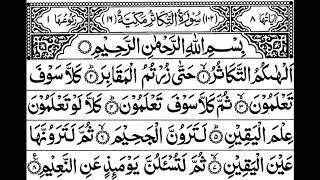 اٰیاتها ٨ (١٠٢) سُوْرَةُ التَّكَاثُرِ مَكِّيَّةٌ (١٦) رکوعها ١
بِسْمِ اللّٰهِ الرَّحْمٰنِ الرَّحِيْمِ
اَلْهٰىكُمُ التَّكَاثُرُ ۙ١ حَتّٰى زُرْتُمُ الْمَقَابِرَ ؕ٢ كَلَّا سَوْفَ
تَعْلَمُوْنَ ۙ٣ ثُمَّ كَلَّا سَوْفَ تَعْلَمُوْنَ ؕ٤ كَلَّا لَوْ تَعْلَمُوْنَ
عِلْمَ الْيَقِيْنِ ؕ٥ لَتَرَوُنَّ الْجَحِيْمَ ۙ٦ ثُمَّ لَتَرَوُنَّهَا
عَيْنَ الْيَقِيْنِ ۙ٧ ثُمَّ لَتُسْـَٔلُنَّ يَوْمَىِٕذٍ عَنِ النَّعِيْمِ ٨